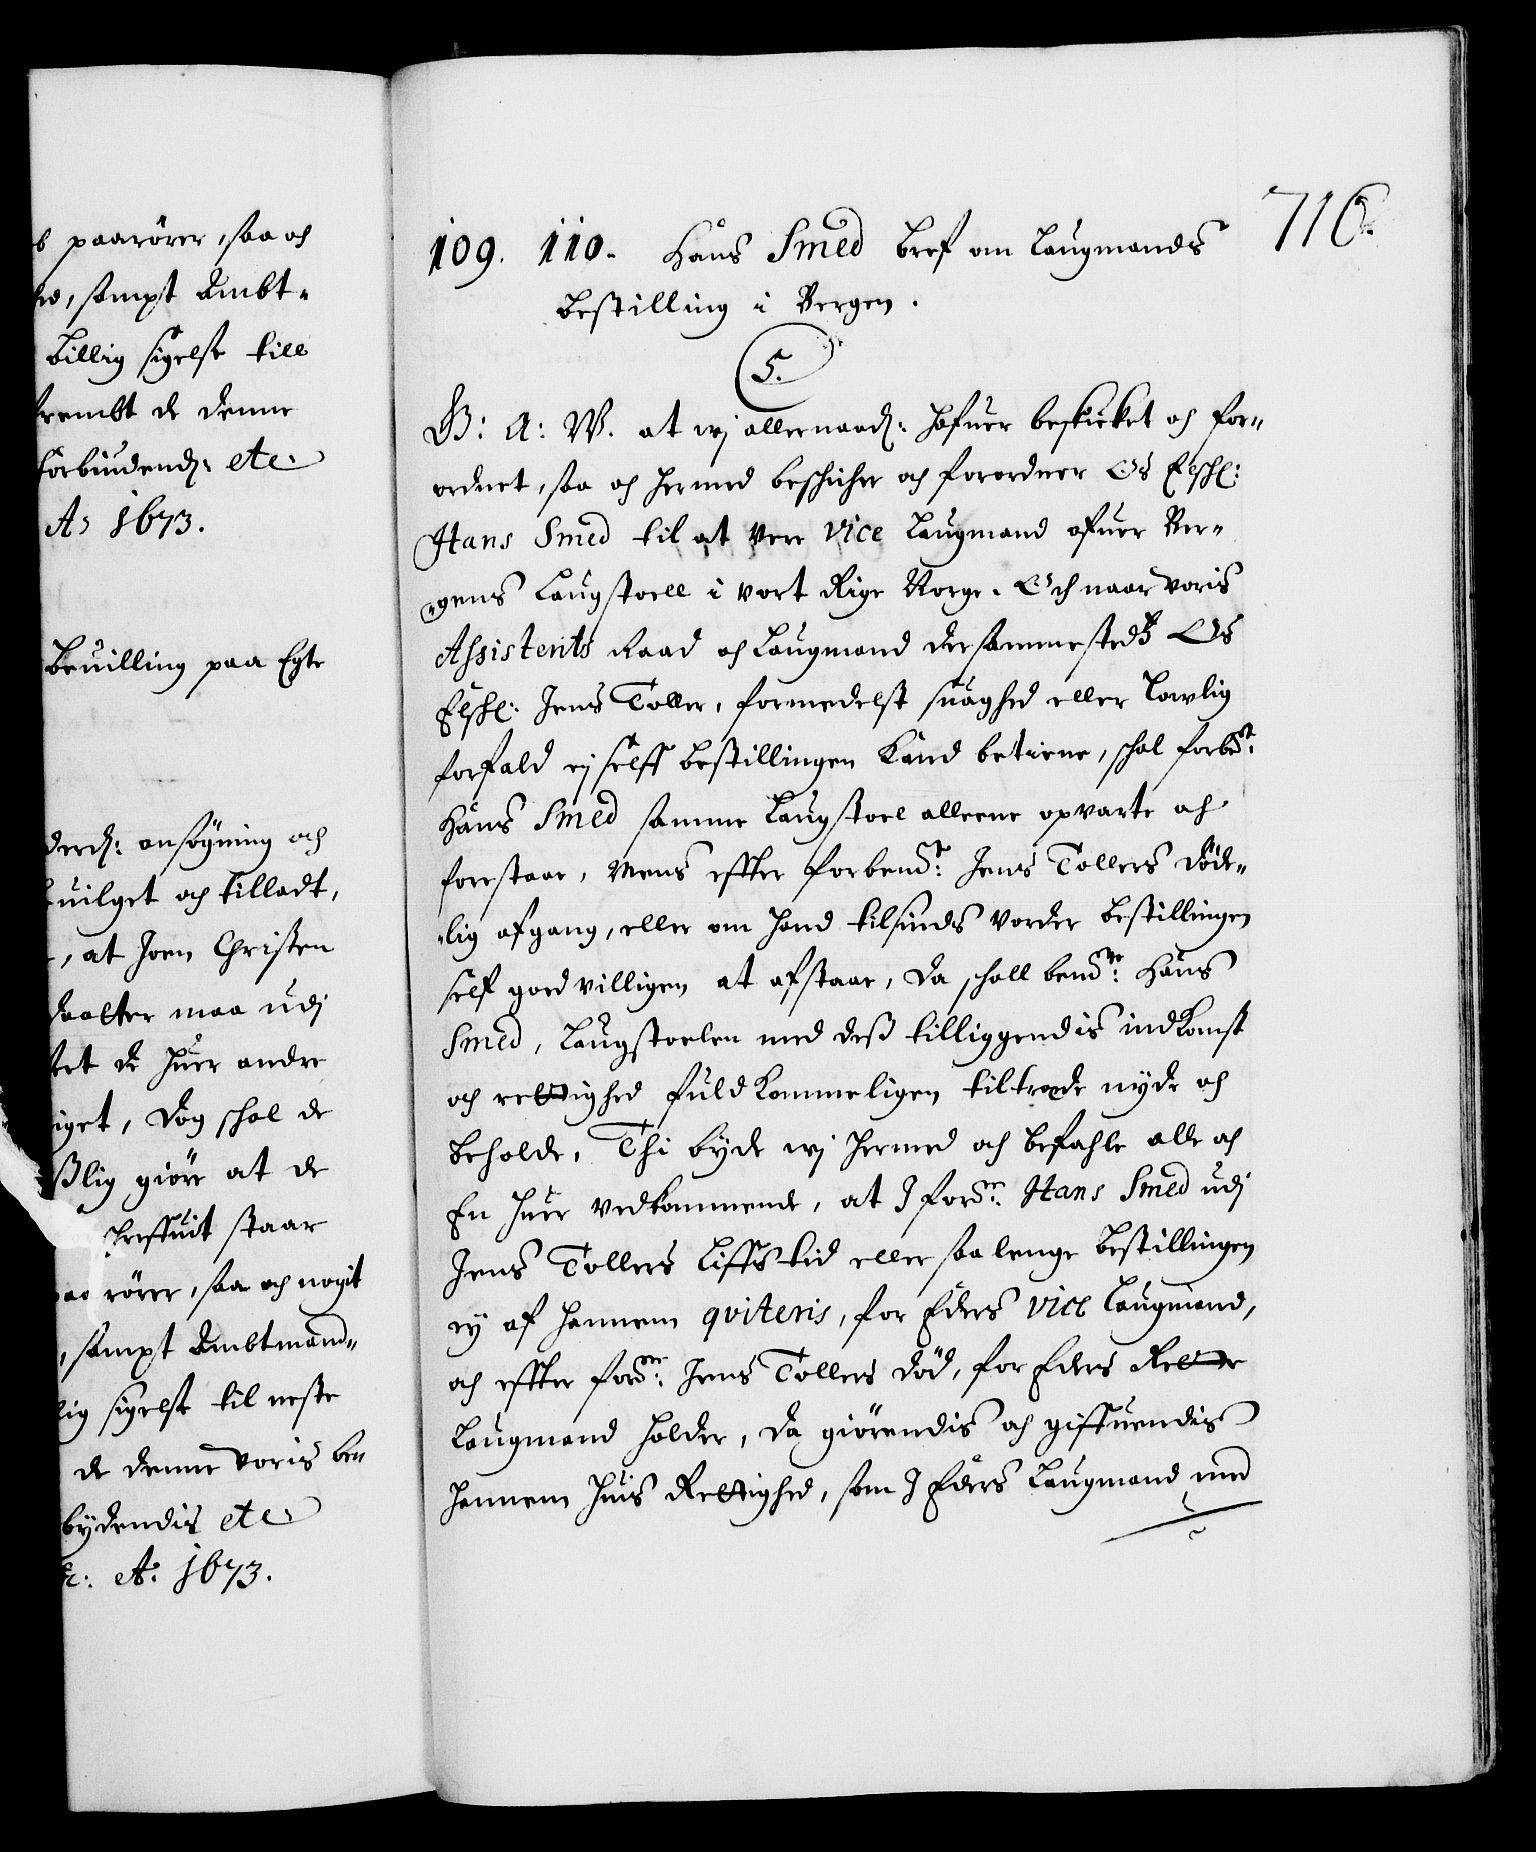 b paarörer, saa och
sampt Ambt-
billig sigelse till
frembt de denne
forbiudend: etc
A: 1673.
Beuilling paa Egte
derd: ansögning och
beuilget och tilladt,
, at Joen Christen
daatter maa udj
tet de huer andre
iget, dog schal de
ßlig giöre at de
herffuit staar
paa rörer, saa och nogit
, sampt Ambtmand-
lig sigelse til neste
de denne voris be-
bydendis etc
A: 1673.
716.
109. 110. Hans Smed bref om Laugmands
bestilling i Bergen.
5.
G: A: W. at wj allernaad: hafuer beskicket och for-
ordnet, saa och hermed beschicher och forordner Os Elschl:
Hans Smed til at vere Vice Laugmand ofuer Ber-
gens Laugstoell i vort Rige Norge. Och naar voris
Assistents Raad och Laugmand dersammesteds Os
Elschl: Jens Toller, formedelst suaghed eller lowlig
forfald ej selff bestillingen kand betiene, schal forbete
Hans Smed samme Laugstoel alleene opvarte och
forestaae, Mens effter forbendte: Jens Tollers döde-
lig afgang, eller om hand tilsinds vorder bestillingen
self goedvilligen at afstaae, da schall bendte: Hans
Smed, Laugstoelen med deß tilliggendis indkomst
och rettighed fuldkommeligen tiltræde nyde och
beholde, Thi byde wj hermed och befahle alle och
En huer vedkommende, at I forne: Hans Smed udj
Jens Tollers Liffs tid eller saa lenge bestillingen
ej af hannem qviteris, for Eders Vice Laugmand,
och effter forne: Jens Tollers död, for Eders Rette
Laugmand holder, da giörendis och giffuendis
hannem huis Rettighed, som I Eders Laugmand med